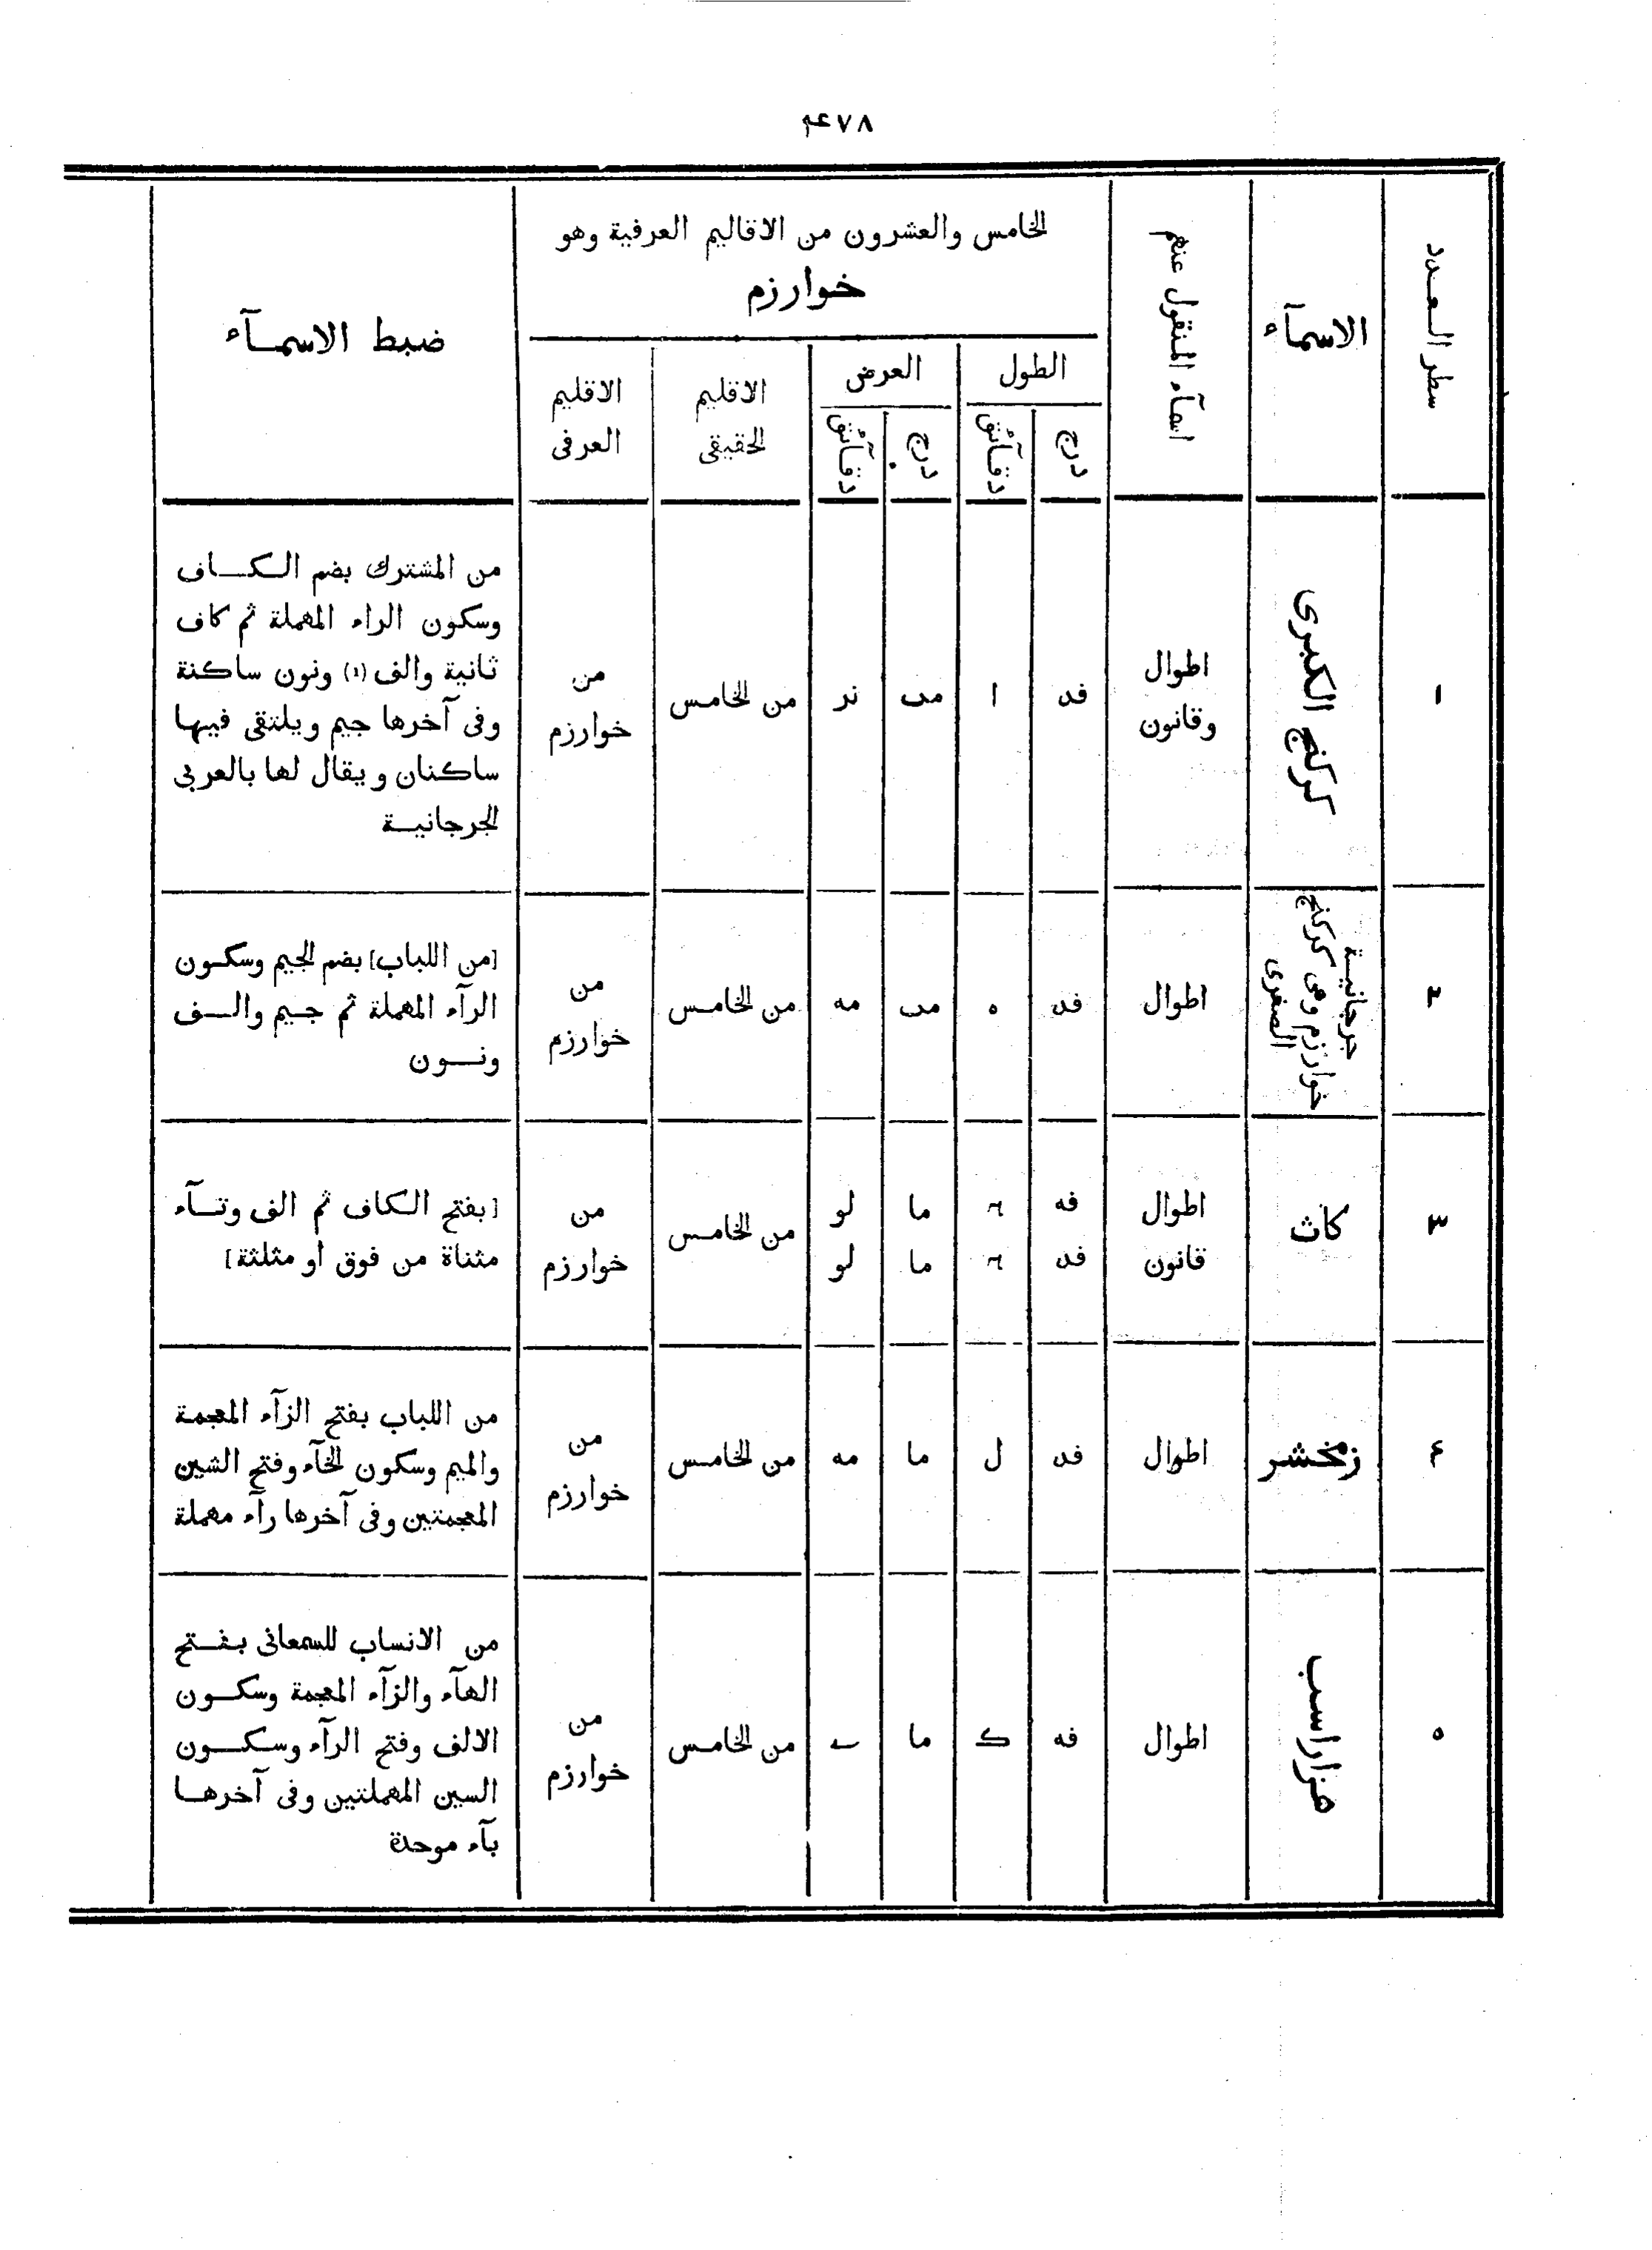 ٤٧٨
سطر العدد
الاسمآء
اسمآء المنقول عنهم
الخامس والعشرون من الاقاليم العرفية وهو
خوارزم
الطول
درج
دقآئق
العرض
درج
دقآئق
الاقليم
الحقيقى
الاقليم
العرفى
ضبط الاسمـآء
١
كركنج الكبرى
اطوال
وقانون
فد
ا
مب
نر
من الخامس
من
خوارزم
من المشترك بضم الكـاف
وسكون الراء المهملة ثم كاف
ثانية والف (١) ونون ساكنة
وفى آخرها جيم ويلتقى فيها
ساكنان ويقال لها بالعربى
الجرجانية
٢
جرجانية
خوارزم وهى كركنج
الصغرى
اطوال
فد
ه
مب
مه
من الخامس
من
خوارزم
[من اللباب] بضم الجيم وسكون
الرآء المهملة ثم جيم والـف
ونـون
٣
كاث
اطوال
قانون
فه
فد
ما
ما
لو
لو
من الخامس
من
خوارزم
[بفتح الكاف ثم الف وتـآء
مثناة من فوق او مثلثة]
٤
زمخشر
اطوال
فد
ل
ما
مه
من الخامس
من
خوارزم
من اللباب بفتح الزآء المعجمة
والميم وسكون الخآء وفتح الشين
المعجمتين وفى آخرها رآء مهملة
٥
هزاراسب
اطوال
فه
ك
ما
ى
من الخامس
من
خوارزم
من الانساب للسمعانى بفتح
الهآء والزآء المعجمة وسكون
الالف وفتح الرآء وسكون
السين المهملتين وفى آخرها
بآء موحدة